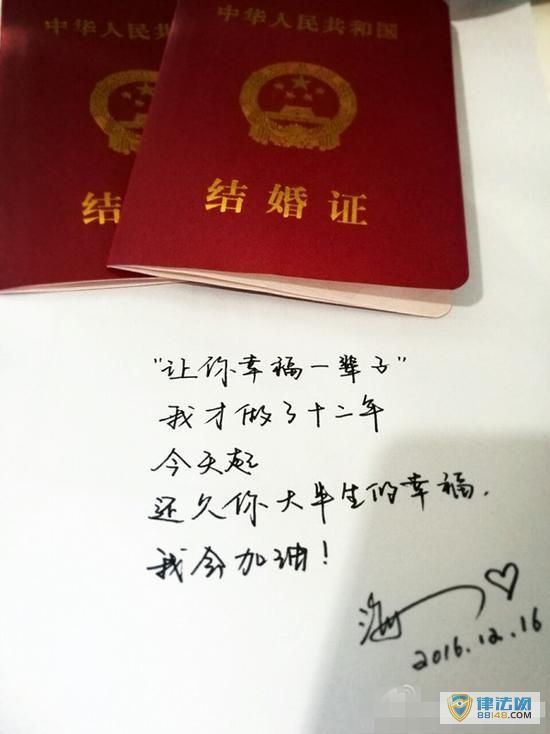 中华人民共
中华人民共和国
结
结婚证
"让你幸福一辈子"
我才做了十二年
今天起
还久你大半生的幸福.
我会加油!
2016.12.16
律法网
89148.com